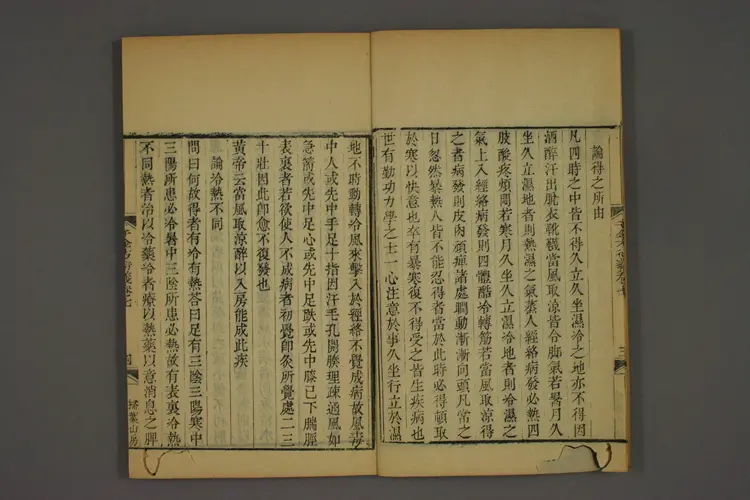 論得之所由
凡四時之中皆不得久立久坐濕冷之地亦不得因
酒醉汗出脫衣靴襪當風取涼皆令腳氣若暑月久
坐久立濕地者則熱濕之氣蒸人經絡病發必熱四
肢酸疼煩悶若寒月久坐久立濕冷地者則冷濕之
氣上入經絡病發則四體酷冷轉筋若當風取涼得
之者病發則皮肉頑痺諸處瞤動漸漸向頭凡常之
日忽然暴熱人皆不能忍得者當於此時必得頓取
於寒以快意也卒有暴寒復不得受之皆生疾病也
世有勤功力學之士一心注意於事久坐行立於濕
地不時動轉冷風來擊入於經絡不覺成病故風毒
中人或先中手足十指因汗毛孔開腠理疎通風如
急箭或先中足心或先中足趺或先中膝已下腨脛
表裏者若欲使人不成病者初覺即灸所覺處二三
十壯因此即愈不復發也
黃帝云當風取涼醉以入房能成此疾
論冷熱不同
問曰何故得者有冷有熱答曰足有三陰三陽寒中
三陽所患必冷暑中三陰所患必熱故有表裏冷熱
不同熱者治以冷藥冷者療以熱藥以意消息之脾
四
掃葉山房